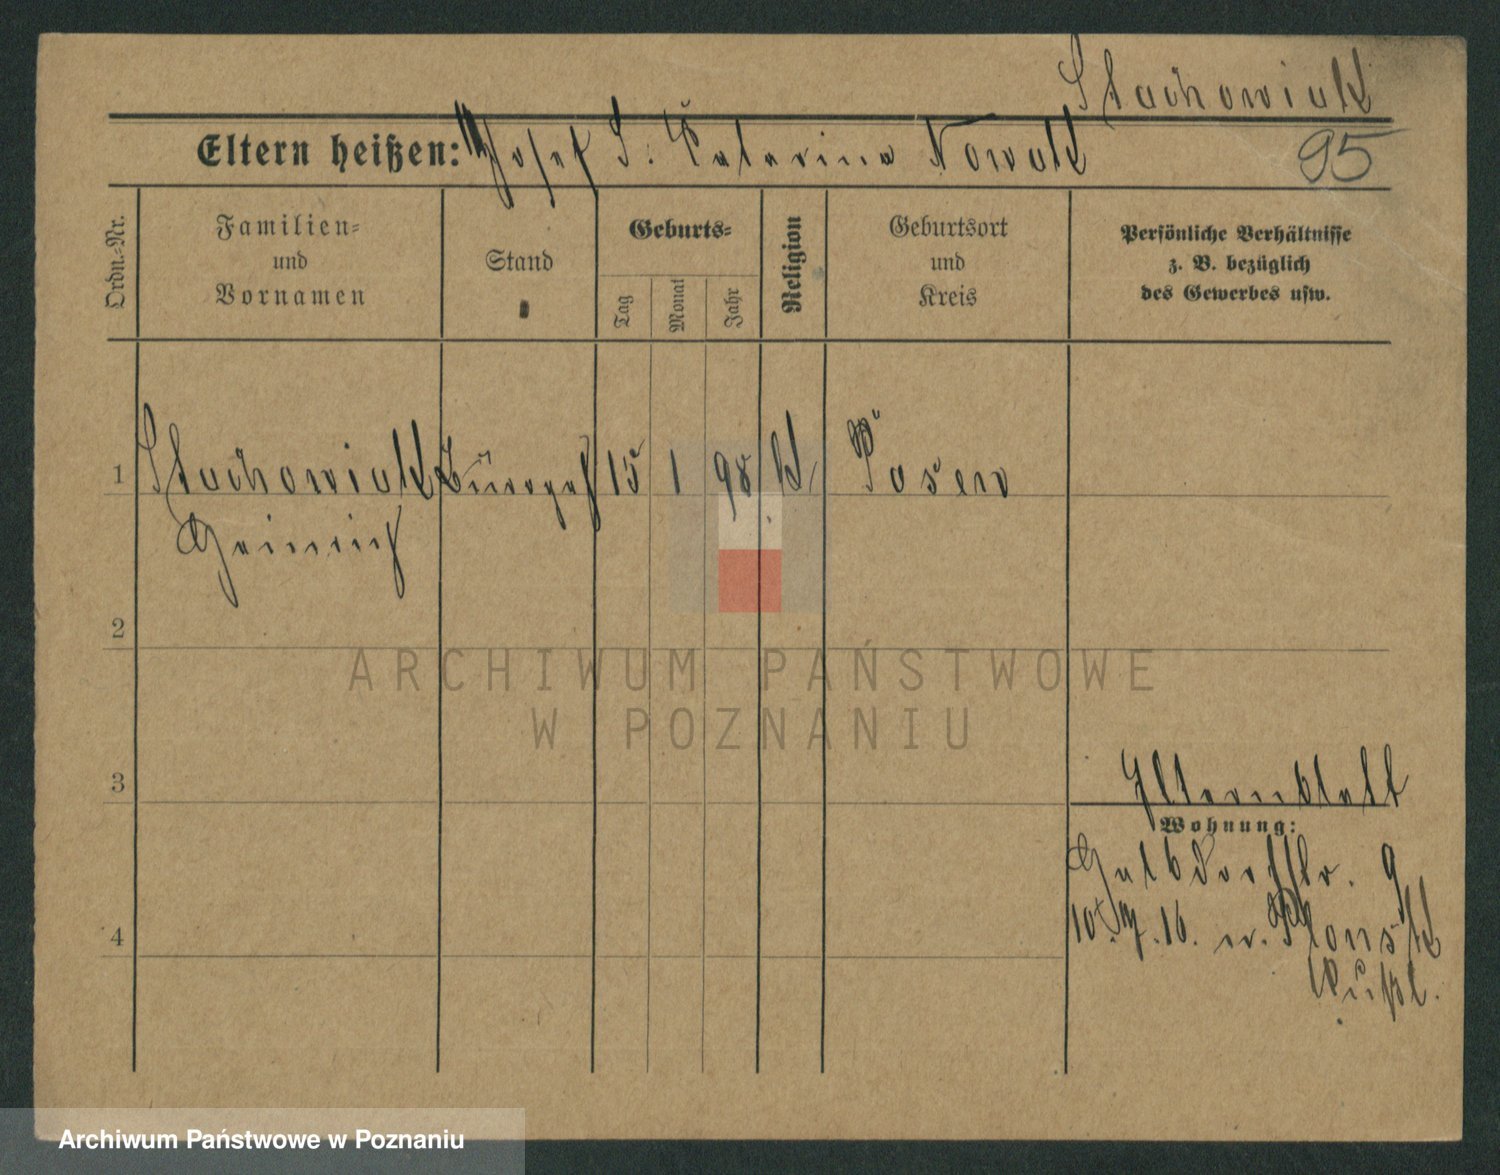 Stachowiak
95
Eltern heißen: Josef S. Katarina Nowak
Ordn.-Nr.
Familien-
und
Vornamen
Stand
Geburts-
Tag
Monat
Jahr
Religion
Geburtsort
und
Kreis
Persönliche Verhältnisse
z. B. bezüglich
des Gewerbes usw.
1 Stachowiak 15 1 98. k. Posen
Heinrich
2
ARCHIWUM PAŃSTWOWE
W POZNANIU
3
Elternblatt
Wohnung:
9
4
10. 16. n. Plonsk
Rußl.
Archiwum Państwowe w Poznaniu